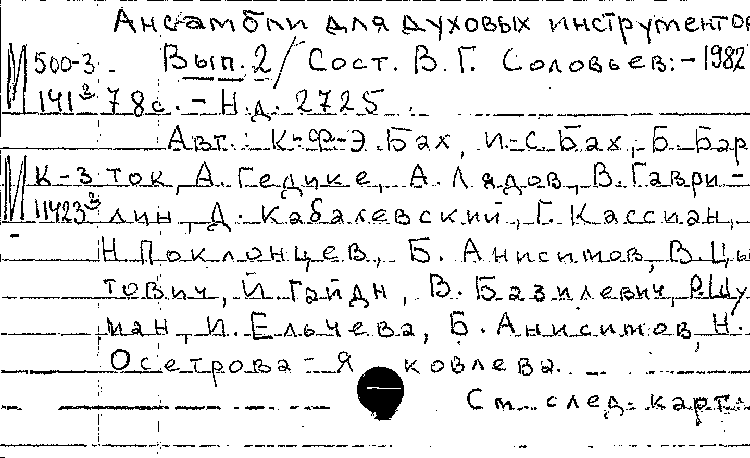 Ансамбли для духовых инструментов
500-3 Вып. 2/ Сост. В.Г. Соловьев. - 1982
141³ 78с. - Н.д. 2725
Авт.: К-Ф-Э. Бах, И-С. Бах, Б. Бар-
К-3 ток, А. Гедике, А. Лядов, В. Гаври-
11423³ лин, Д. Кабалевский, Г. Кассиан,
Н. Поклонцев, Б. Анисимов, В. Цы
тович, Й. Гайдн, В. Базилевич, Р. Шу
ман, И. Ельчева, Б. Анисимов, Н.
Осетрова-Яковлева.
См. след. карт.